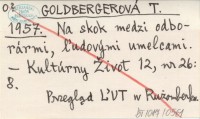 GOLDBERGEROVÁ T.
1957. Na skok medzi odbo-
rármi, ľudovými umelcami.
- Kultúrny Život 12, nr 26:
8.
Przegląd ĽUT w Rużomberku